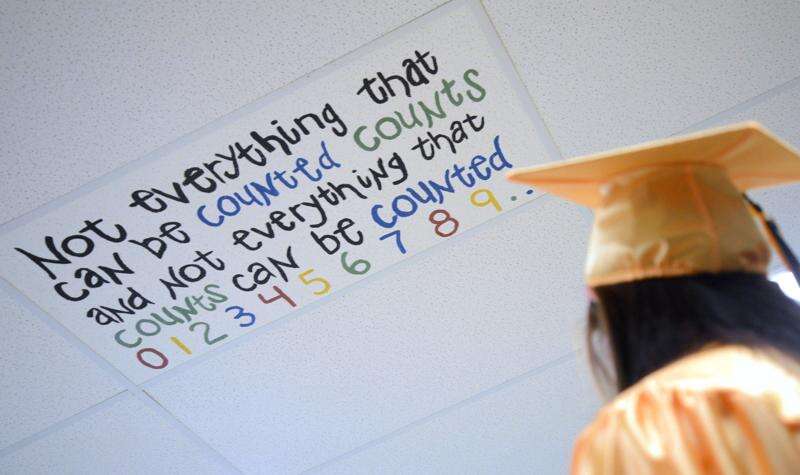 Not everything that
can be counted counts
and not everything that
counts can be counted
0 1 2 3 4 5 6 7 8 9...